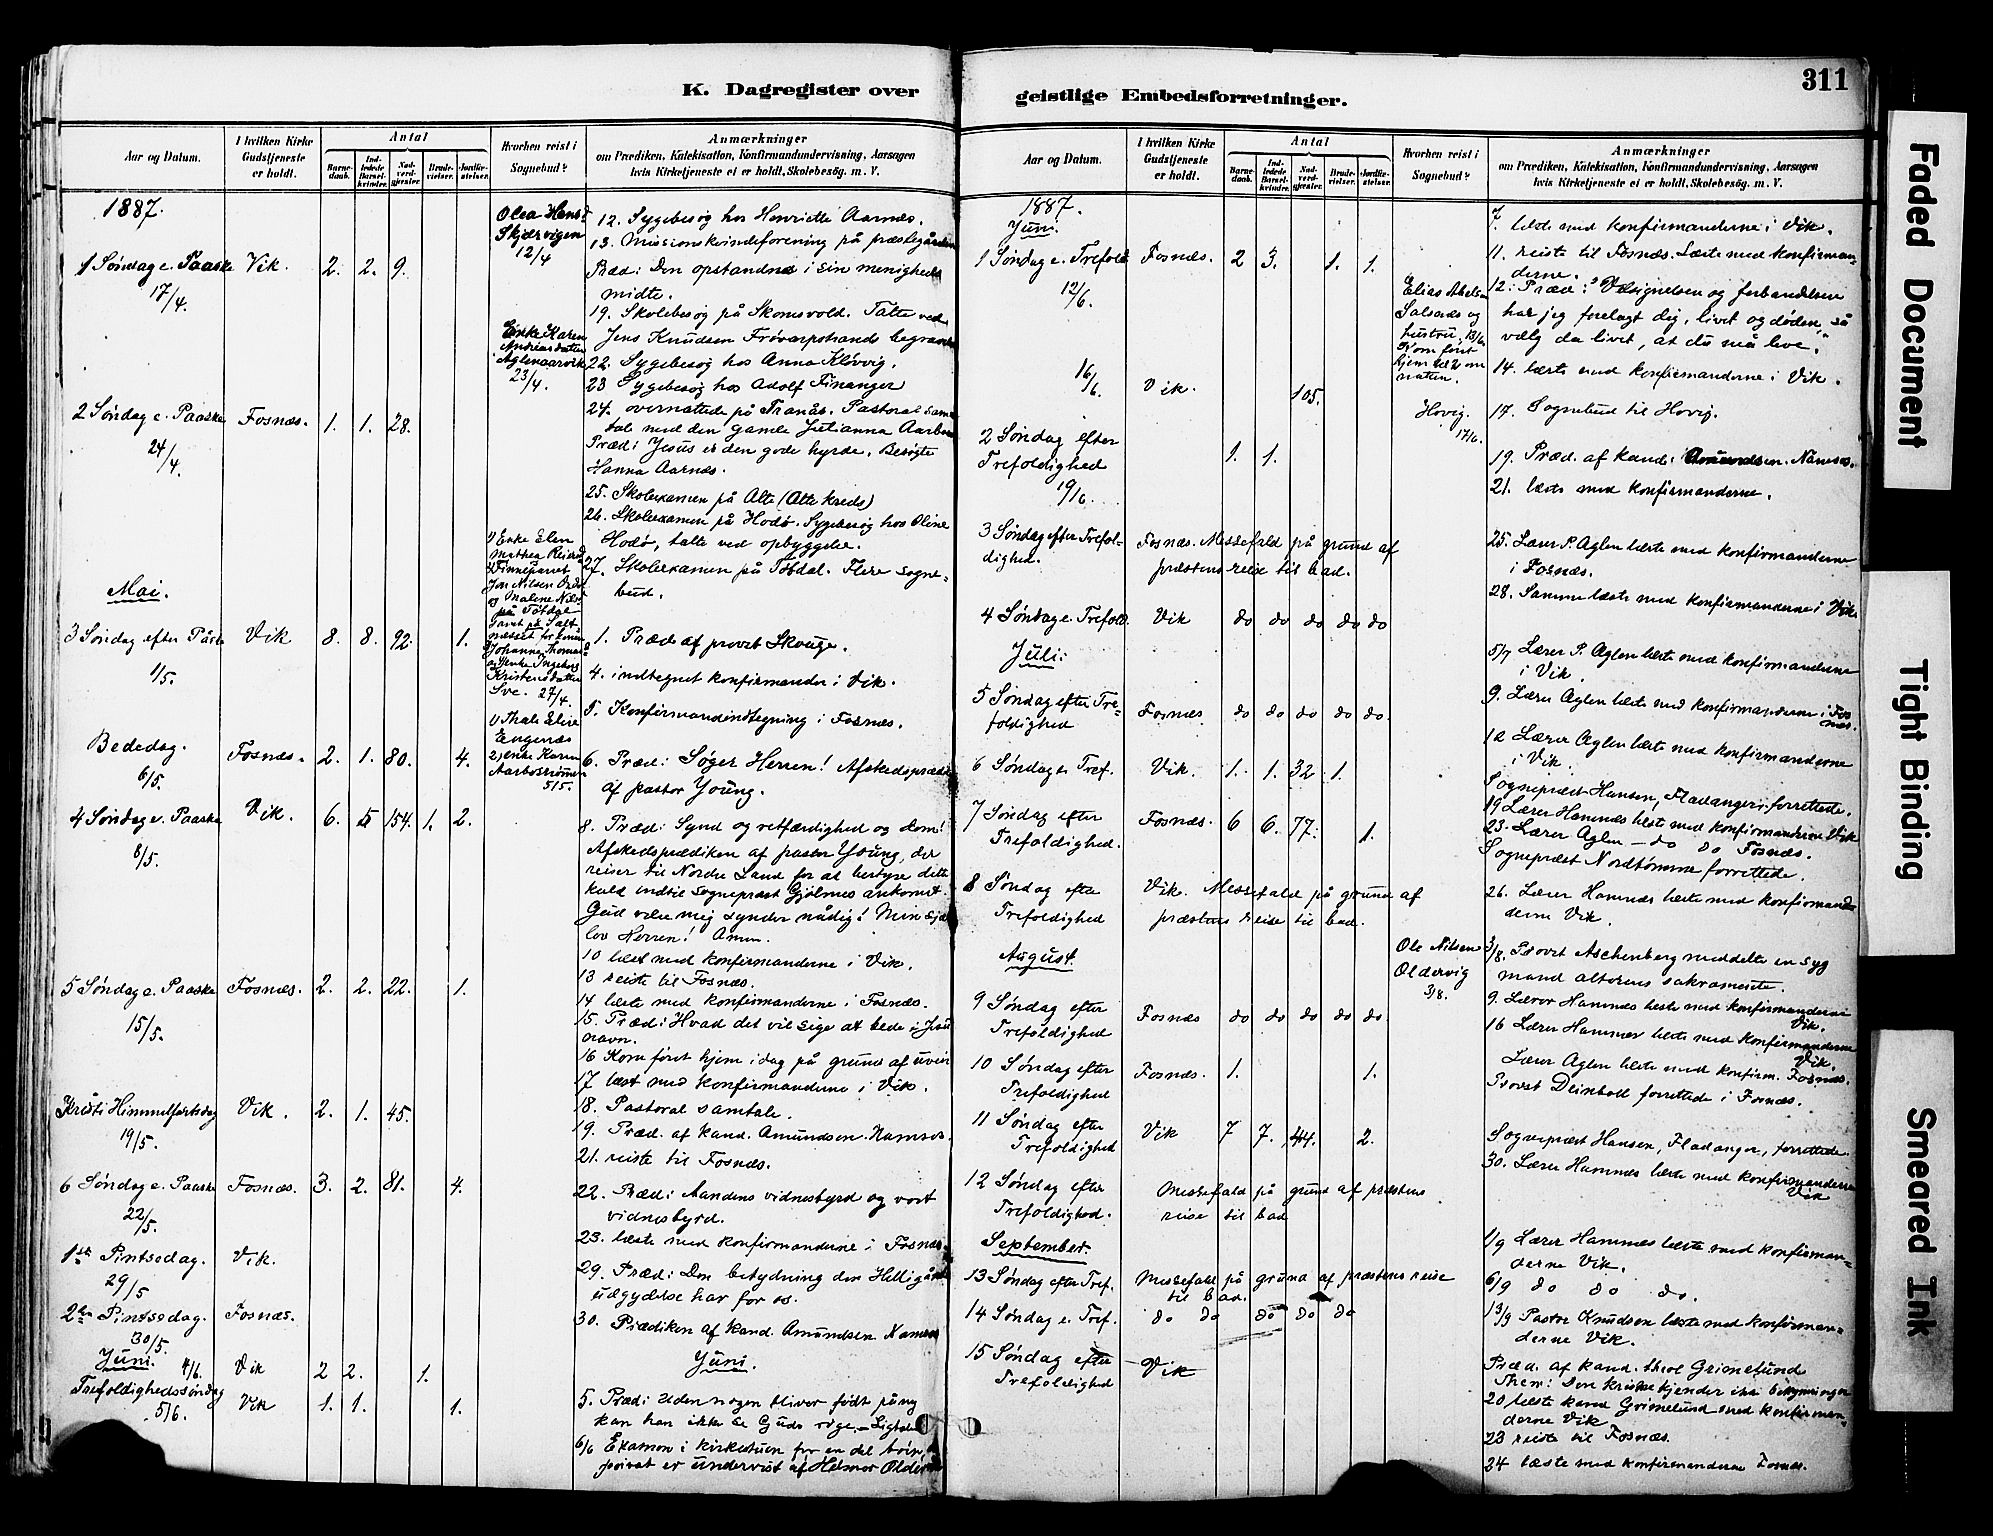 K. Dagregister over
Aar og Datum.
I hvilken Kirke Gudstjeneste er holdt.
Antal
Barnedaab.
Indledede Barselkvinder.
Nadverdgjæster.
Brudevielser.
Jordfæstelser.
Hvorhen reist i Sognebud?
Anmærkninger
om Prædiken, Katekisation, Konfirmandundervisning, Aarsagen
hvis Kirketjeneste ei er holdt, Skolebesøg. m. V.
1887.
Olea Hansd
Skjærvigen
12/4
12. Sygebesøg hos Henriette Aarnæs.
13. Missionskvindeforening på præstegården
1 Søndag e. Paaske Vik. 2. 2. 9.
17/4.
Præd: Den opstandne i sin menigheds
midte.
19. Skolebesøg på Skomsvold. Talte ved
Jens Knudsen
Enke Karen
23/4.
22. Sygebesøg hos Anna Kløvvig.
23 Sygebesøg hos Adolf Finanger
2 Søndag e. Paaske Fosnæs. 1. 1. 28.
24/4.
24. overnattede på Tranås. Pastoral sam
tale med den gamle Julianna
Præd: Jesus er den gode hyrde. Besøgte
Hanna Aarnæs.
25. Skolexamen på Alte (Alte kreds)
26. Skolexamen på Hodø. Sygebesøg hos Oline
Hodø, talte ved opbyggelse.
1) Enke Elen
27. Skolexamen på Tøtdal. Flere sogne-
bud.
Mai.
3 Søndag efter Påske Vik 8. 8. 92. 1.
1/5.
Sve. 27/4.
1. Præd af provst Skouge.
4. indtegnet konfirmander i Vik.
5. Konfirmandindtegning i Fosnæs.
1) Thale Elise
Engenæs
2) enke Karen
5/5.
Bededag. Fosnæs. 2. 1. 80. 4.
6/5.
6. Præd: Søger Herren! Afskedspræd
af pastor Young.
4 Søndag e. Paaske Vik. 6. 5 154. 1. 2.
8/5.
8. Præd: Synd og retfærdighed og dom!
Afskedsprædiken af pastor Young, der
reiser til Nordre Land for at bestyre dette
kald indtil sognepræst Gjølmes ankomst.
Gud være mig synder nådig! Min sjæl
lov Herren! Amen.
10 læst med konfirmanderne i Vik.
13 reiste til Fosnæs.
5 Søndag e. Paaske Fosnæs. 2. 2. 22. 1.
15/5.
14 læste med konfirmanderne i Fosnæs.
15. Præd: Hvad det vil sige at bede i Jesu
navn.
16 Kom først hjem idag på grund af uveir
17 læst med konfirmanderne i Vik.
Kristi Himmelfartsdag Vik. 2. 1. 45.
19/5.
18. Pastoral samtale.
19. Præd. af kand. Amundsen. Namsos.
21. reiste til Fosnæs.
6 Søndag e. Paaske Fosnæs. 3. 2. 81. 4.
22/5.
22. Præd: Aandens vidnesbyrd og vort
vidnesbyrd.
23. læste med konfirmanderne i Fosnæs.
1ste Pintsedag. Vik.
29/5
29. Præd: Den betydning den Helligånds
udgydelse har for os.
2den Pintsedag. Fosnæs.
30/5.
30. Prædiken af kand. Amundsen Namsos
Juni.
Juni.
4/6. Vik 2 2. 1.
Trefoldighedssøndag Vik 1. 1. 1.
5/6.
5. Præd: Uden nogen bliver født påny
kan han ikke se Guds rige.
6/6 Examen i kirkestuen for en del børn,
privat er undervist af Helmer
geistlige Embedsforretninger.
311
Aar og Datum.
I hvilken Kirke Gudstjeneste er holdt.
Antal
Barnedaab.
Indledede Barselkvinder.
Nadverdgjæster.
Brudevielser.
Jordfæstelser.
Hvorhen reist i Sognebud?
Anmærkninger
om Prædiken, Katekisation, Konfirmandundervisning, Aarsagen
hvis Kirketjeneste ei er holdt, Skolebesøg. m. V.
1887.
Juni.
7. læste med konfirmanderne i Vik.
1 Søndag e. Trefold. Fosnæs. 2 3. 1. 1.
12/6.
11. reiste til Fosnæs. Læste med konfirman-
derne.
Elias
Salsnæs og
hustru, 13/6
Kom først
hjem kl 2 om
natten.
12: Præd: "Velsignelsen og forbandelsen
har jeg forelagt dig, livet og døden, så
vælg da livet, at du må leve."
14. læste med konfirmanderne i Vik.
16/6. Vik. 105.
Hovig.
17/6.
17. Sognebud til Hovig.
2 Søndag efter
Trefoldighed
19/6.
1. 1.
19. Præd. af kand. Amundsen. Namsos.
21. læste med konfirmanderne.
3 Søndag efter Trefol-
dighed.
Fosnæs. Messefald på grund af
præstens reise til bad.
25. Lærer P. Aglen læste med konfirmanderne
i Fosnæs.
28. Samme læste med konfirmanderne i Vik
4 Søndag e. Trefold. Vik do do do do do
Juli:
5/7 Lærer P. Aglen læste med konfirmanderne
i Vik.
5 Søndag efter Tre-
foldighed
Fosnæs do do do do do.
9. Lærer Aglen læste med konfirmanderne i Fos
næs.
12 Lærer Aglen læste med konfirmanderne
i Vik.
6 Søndag e Tref. Vik. 1. 1. 32 1.
Sognepræst Hansen, Fladanger, forrettede.
19 Lærer Hammes læst med konfirmanderne Vik
7 Søndag efter
Trefoldighed.
Fosnæs. 6 6. 77. 1.
23. Lærer Aglen – do do Fosnæs.
Sognepræst Nordtømme forrettede.
8 Søndag efter
Trefoldighed
Vik. Messefald på grund af
præstens reise til bad.
26. Lærer Hammes læste med konfirman
derne Vik.
August.
Ole Nilsen
Oldervig
3/8.
3/8. Provst Aschenberg meddelte en syg
mand alterens sakramente.
9 Søndag efter
Trefoldighed
Fosnæs do do do do do.
9. Lærer Hammes læste med konfirmanderne
Vik.
16 Lærer Hammes læste med konfirmanderne
Vik.
10 Søndag efter
Trefoldighed
Fosnæs. 1. 1.
Lærer Aglen læste med konfirm. Fosnæs.
Provst Deinboll forrettede i Fosnæs.
11 Søndag efter
Trefoldighed
Vik 7 7. 44. 2.
Sognepræst Hansen, Fladanger, forrettede
30. Lærer Hammes læste med konfirmanderne
Vik
12 Søndag efter
Trefoldighed.
Messefald på grund af præstens
reise til bad
September.
1/9 Lærer Hammes læste med konfirman-
derne Vik.
13 Søndag efter Tref.
Messefald på grund af præstens reise
til bad.
6/9 do do do.
14 Søndag e. Tref. do do do do do
13/9 Pastor Knudsen læste med konfirman-
derne Vik.
15 Søndag efter
Trefoldighed
Vik
Præd. af kand. theol Grimelund
Them: Den kristne kjender ikke bekymringer
20 læste kand Grimelund med konfirman-
derne Vik
23 reiste til Fosnæs.
24 læste med konfirmanderne Fosnæs.
Faded Document
Tight Binding
Smeared Ink